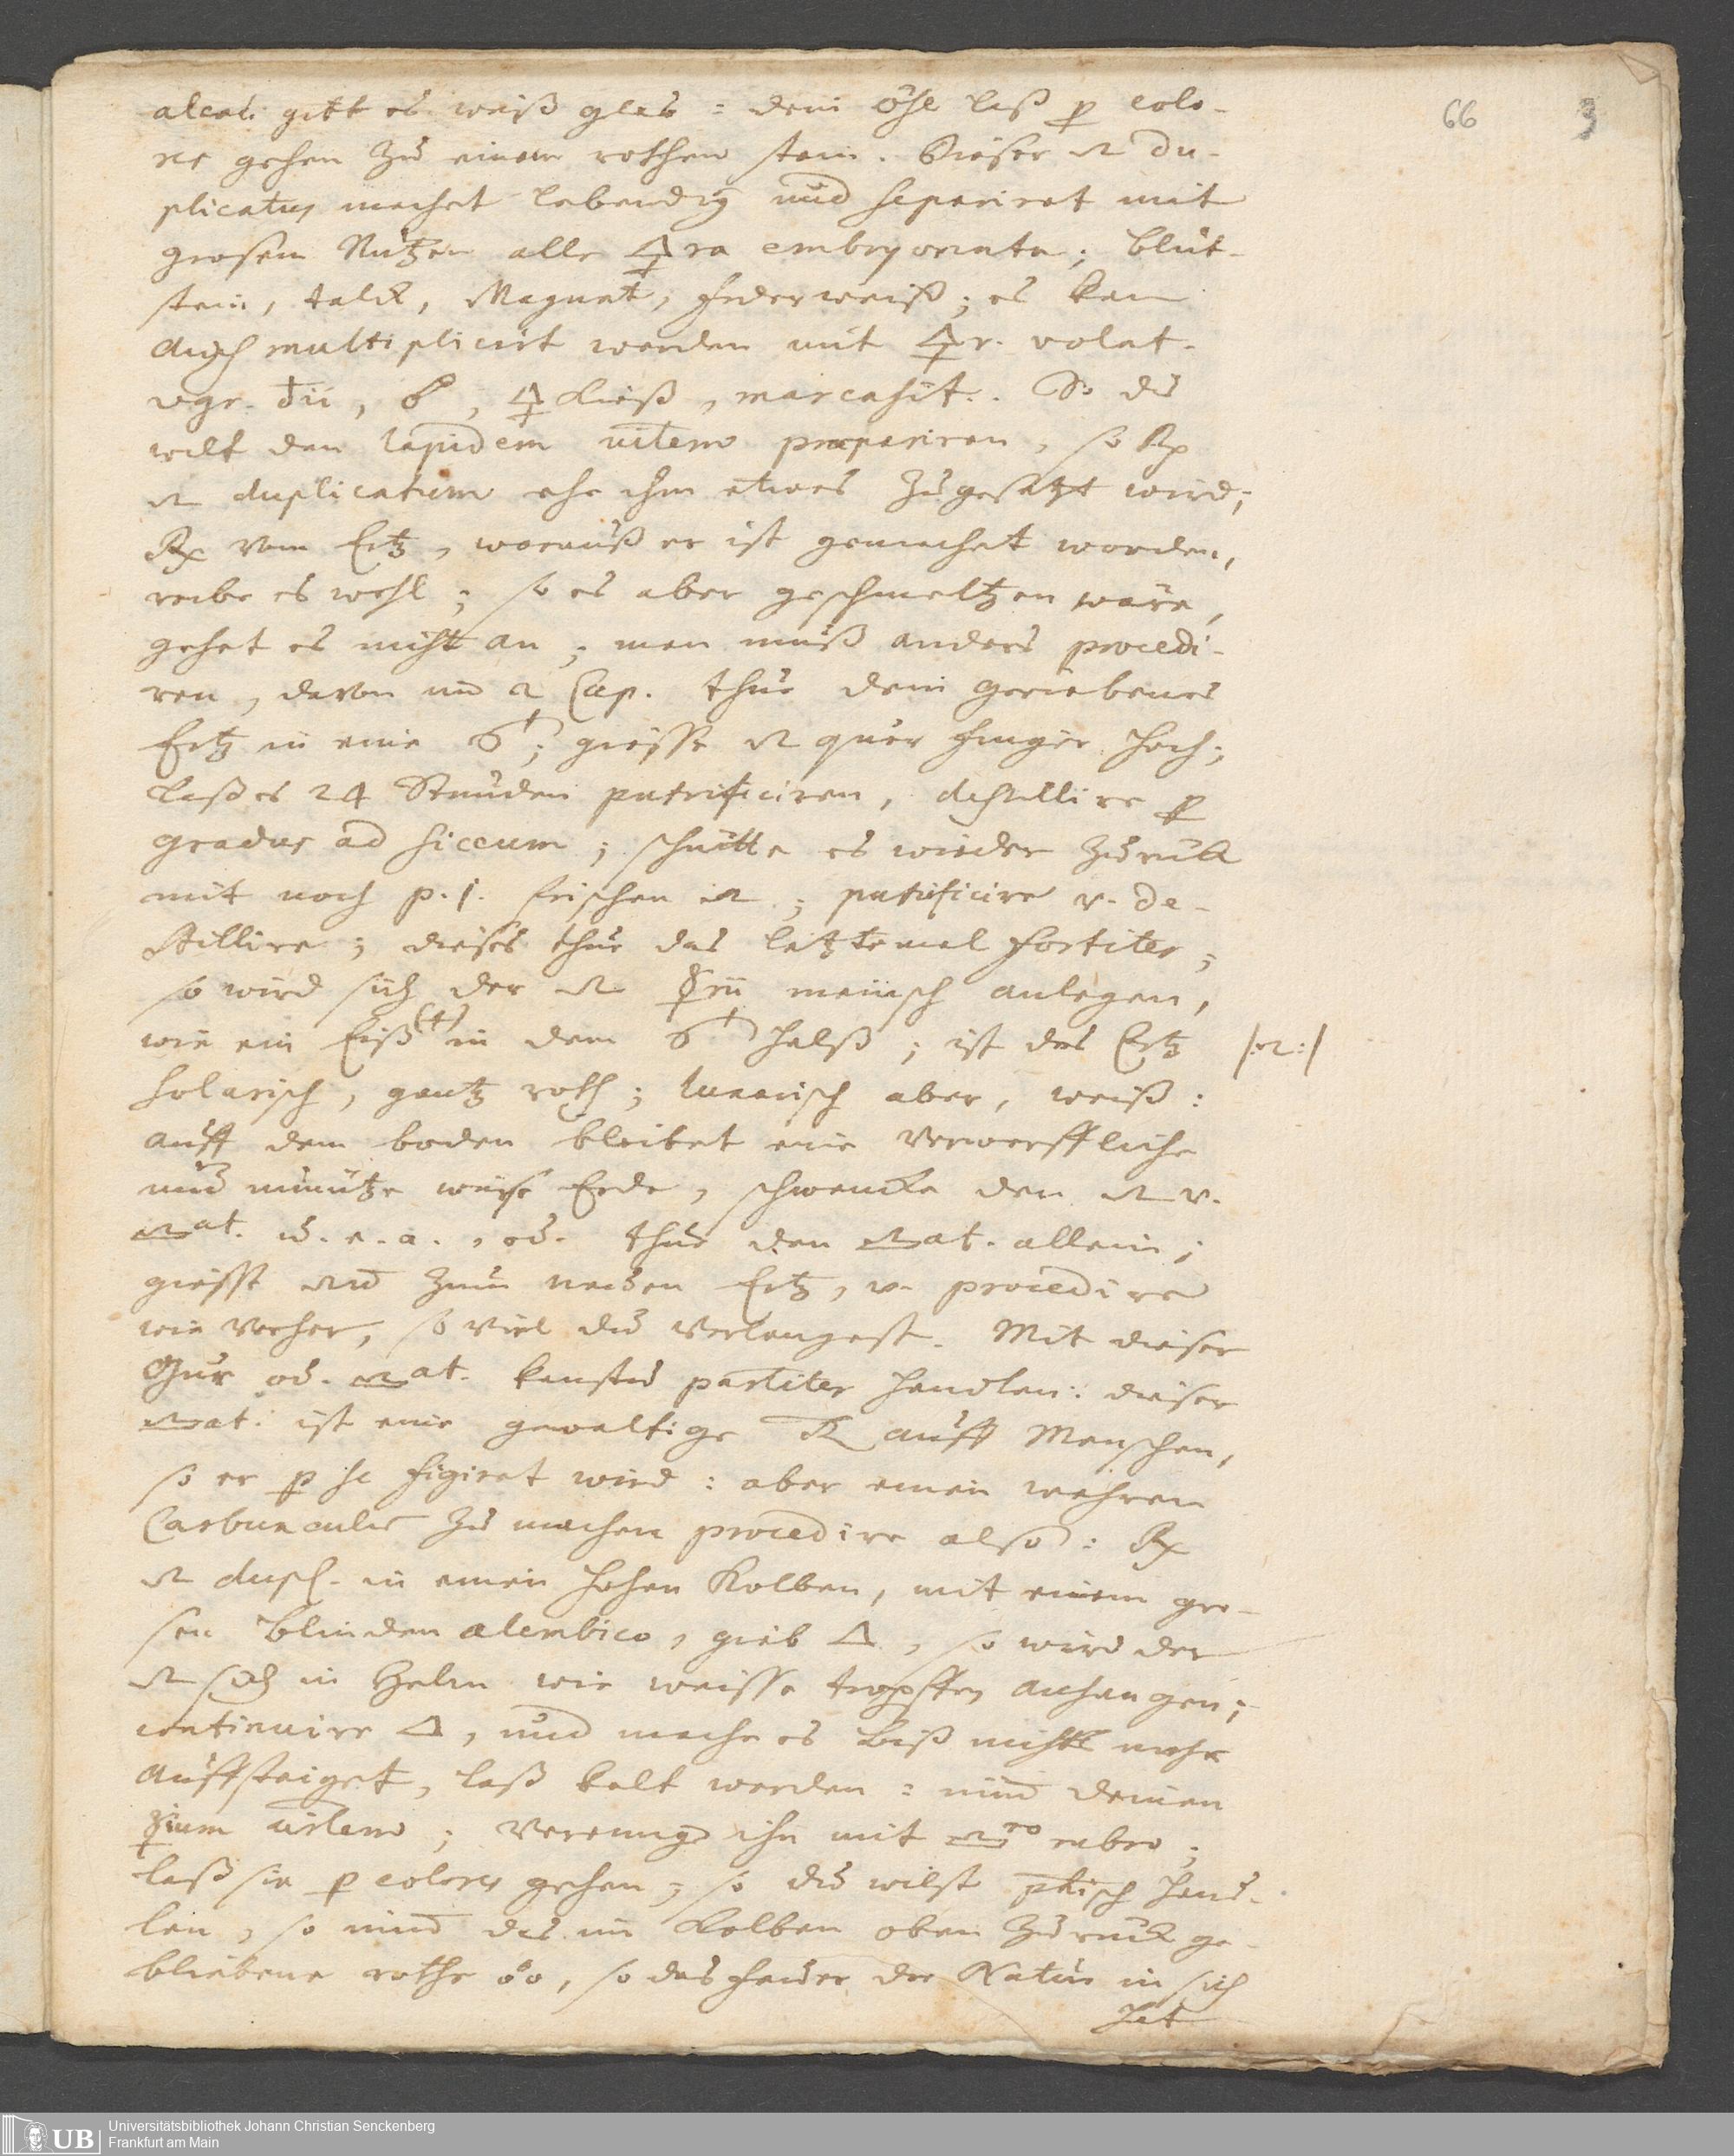 alcali gibt es weiß glas: dein öhl laß p colo-
res gehen zu einem rothen stein. Dieser 🜹 du-
plicatus machet lebendig und separiret mit
grosem Nutzen alle 🜍ra embryonata; blut-
stein, talck, Magnet, federweiß; es kan
auch multiplicirt werden mit 🜍r. volat.
♂, 🜍 kieß, marcasit. So du
wilt den lapidem præpariren, so ℞
duplicatum ehe ihm etwas zugesetzt wird;
℞ vom Ertz,worauß er ist gemachet worden,
reibe es wohl; so es aber geschmeltzen wäre,
gehet es nicht an; man muß anders procedi-
ren, davon im 2 Cap. thue dein geriebenes
Ertz in eine; giesse quer finger hoch;
laß es 24 Stunden putrificiren, destillire p
gradus ad siccum; schütte es wieder zurück
mit noch p. j. frischen; putrificire v. de-
stillire; dieses thue das letztemal fortiter;
so wird sich der anlegen,
wie ein Eiß (+) in dem halß; ist das Ertz
solarisch, gantz roth; lunarisch aber, weiß:
auff dem boden bleibet eine verwerffliche
und unnütze weise Erde, schwencke den v.
at. w. e. a., od. thue den at. allein;
giesse zum neuen Ertz, v. procedire
wie vorher, so viel du verlangest. Mit dieser
Gur od. at. kanstu partiter handlen: dieser
at. ist eine gewaltige auff Menschen,
so er p se figiret wird: aber einen wahren
Carbuncule zu machen procedire also: ℞
dupl. in einen hohen Kolben, mit einem gro-
sen blinden alembico, gieb △, so wird der
sich in Helm wie weisse tropffen anhangen;
continuire △, und mache es biß nichts mehr
auffsteiget, laß kalt werden: nim deinen
☿ium; vereinige ihn mit ro rubro;
laß sie p colores gehen; so du wilst ptisch hand-
len, so nim das im Kolben oben zurück ge-
bliebene rothe, so das feuer der Natur in sich
hat
66
3
Universitätsbibliothek Johann Christian Senckenberg
Frankfurt am Main
UB